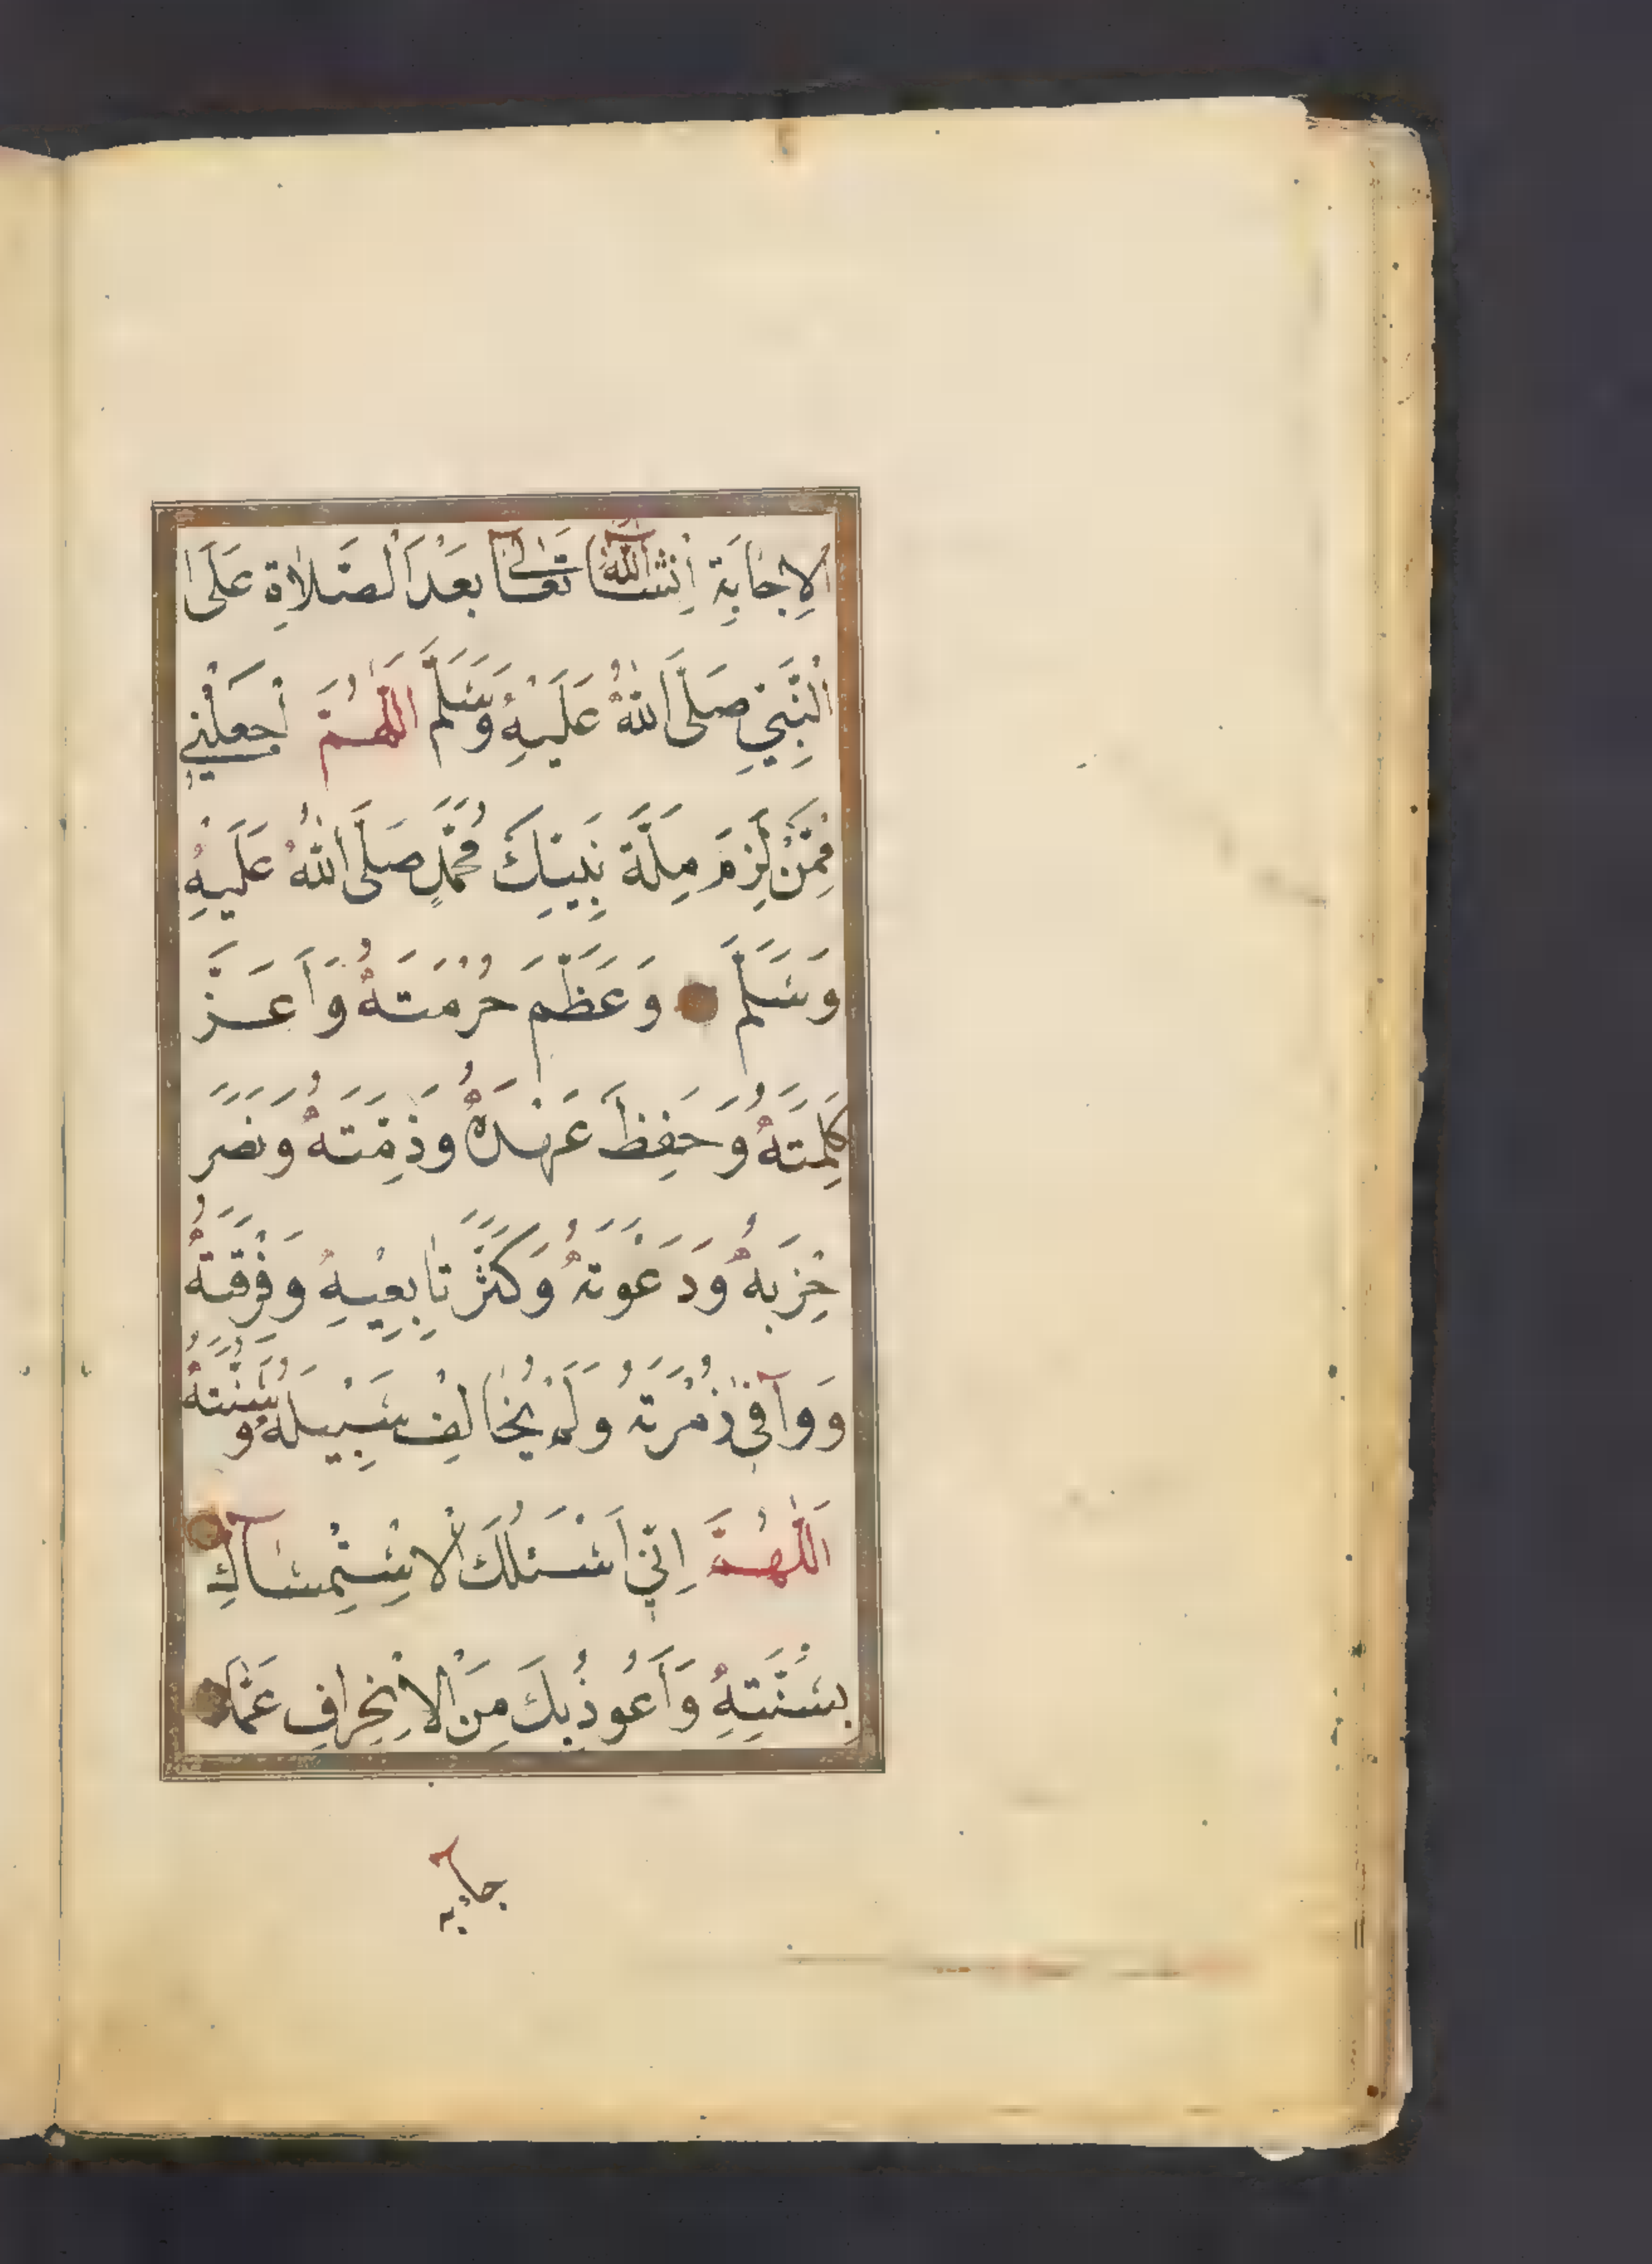 الاِجَابَةِ اِنْشَآءَ اللهُ تَعَالٰى بَعْدَ الْصَّلَاةِ عَلَى
الْنَّبِيِّ صَلَّى اللهُ عَلَيْهِ وَسَلَّمَ اللّٰهُمَّ اجْعَلْنِي
مِمَّنْ لَزِمَ مِلَّةَ نَبِيِّكَ مُحَمَّدٍ صَلَّى اللهُ عَلَيْهِ
وَسَلَّمَ وَعَظَّمَ حُرْمَتَهُ وَاَعَزَّ
كَلِمَتَهُ وَحَفِظَ عَهْدَهُ وَذِمَّتَهُ وَنَصَرَ
حِزْبَهُ وَدَعْوَتَهُ وَكَثَّرَ تَابِعِيهِ وَفِرْقَتَهُ
وَوَآفٰى زُمْرَتَهُ وَلَمْ يُخَالِفْ سَبِيْلَهُ وَسُنَّتَهُ
اَللّٰهُمَّ اِنِّي اَسْئَلُكَ الْاِسْتِمْسَآكَ
بِسُنَّتِهِ وَاَعُوذُ بِكَ مِنَ الْاِنْحِرَافِ عَمَّا
جآءبه